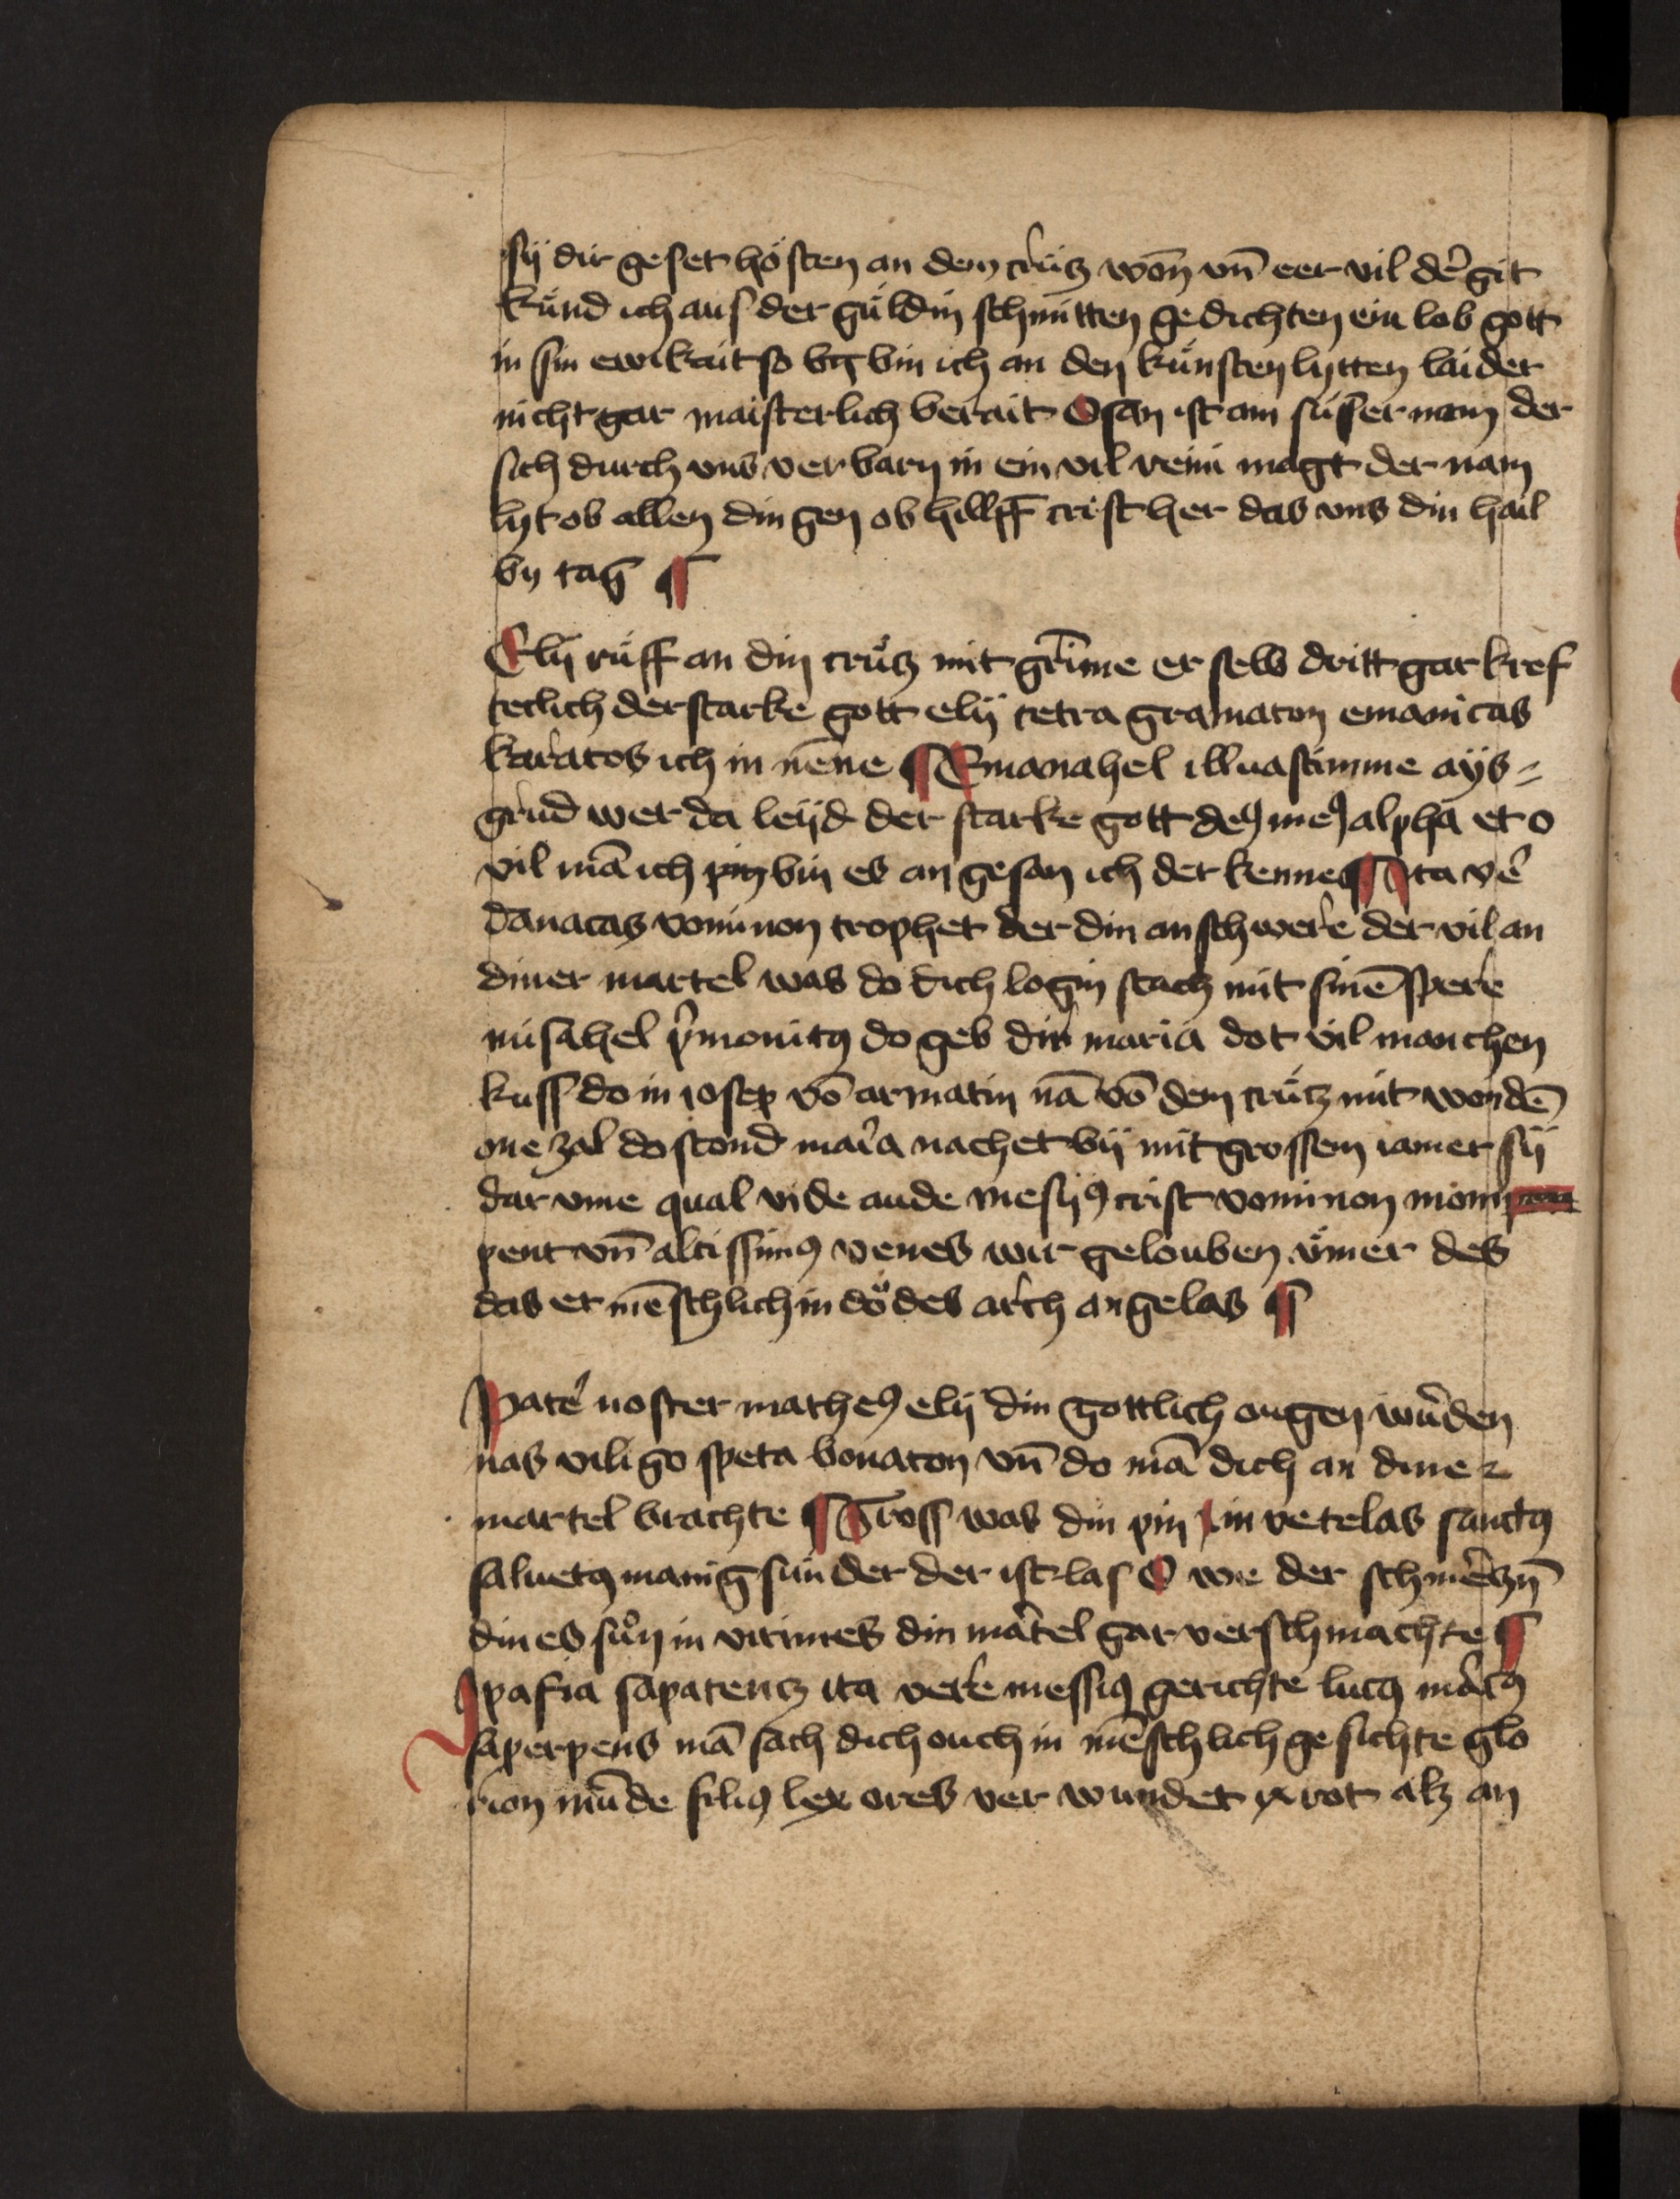 sÿ dir geset höchsten an dem crütz won vn̄ eer vil der git
kǘnd ich aus der güldin schmitten gedichten ein lob gott
in sin ewikait so bin ich an den künsten lytten laider
nicht gar maisterlich berait Osan ist ain süsser nam der
sich durch uns verbarg in ein vil reini magt der nam
lyt ob allen dingen ob hillff crist her das uns din hail
by tag ¶
Elÿ rüff an din crütz mit grīme er selb dritt gar kref
teclich der starke gott elÿ tetra gramaton emanicas
karatos ich in nēne ¶ Emanahel illuastimme aÿs⸗
grud wer da leÿd der starke gott deꝰ meꝰ alpha et o
vil mā ich bin es an gesan ich der kenne ¶ Ita ve᷑
danatas vominon trophet der din an schwere der vil an
diner martel was do dich login stach mit sinē spere
misahel p᷑monitꝰ do geb dir maria dot vil manchen
kuss do in iosep vō armatin nā vō dem crütz mit wondē
one zal do stond mar᷑a nachet bÿ mit grossem iamer sÿ
dar vme qual vide aude mesyꝰ crist vominon mom
pent vn̄ altissimꝰ venes wir gelouben v̈mer des
das er mēschlich in dödes arch angelas ¶
Pate᷑ noster matheꝰ elÿ din gottlich ougen wurden
nas viligo speta bonaton vn̄ do mā dich an diner
martel brachte ¶ Gross was din pin in vetelas sanctꝰ
saluetꝰ manig sünder der ist las O we der schmerczn̄
dines sün in virimes din martel gar verschmachte ¶
Ipafia sapatentz ita vere messiꝰ gerichte lucꝰ marcꝰ
saperpens mā sach dich ouch in mēschlich gesichte glo
rion mūde filiꝰ lex ores ver wundet rot alz an